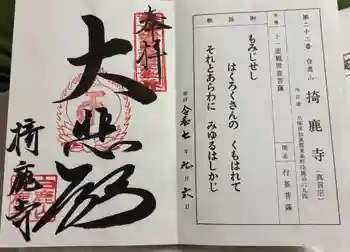 奉拝
大悲殿
掎鹿寺
第二十二番 白鹿山
掎鹿寺（真言宗）
本尊 十一面観世音菩薩
開基 行基菩薩
御詠歌
もみじせし
はくろくさんの くもはれて
それとあらわに みゆるはしかじ
令和七年九月六日